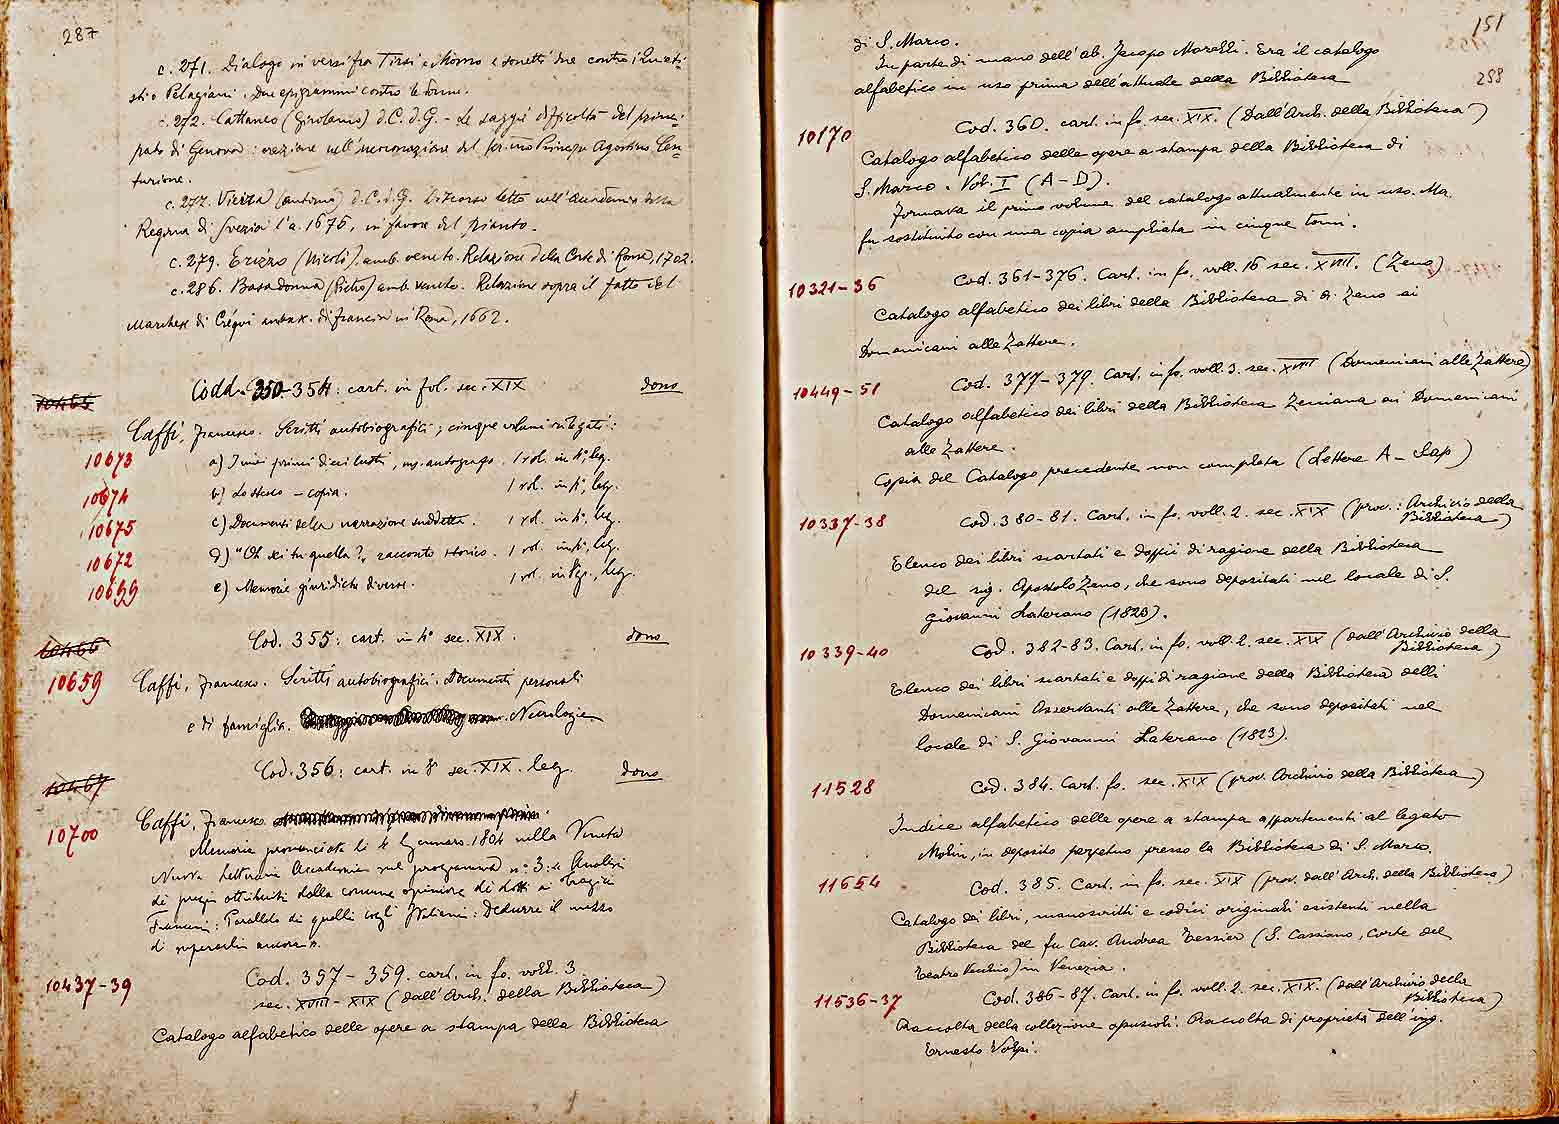 287
c. 271. Dialogo in versi fra Tirsi e Momo e sonetti due contro i Quieti-
sti e Pelagiani. Due epigrammi contro le donne.
c. 272. Cattaneo (Girolamo) d. C. d. G. - Le saggie difficoltà del princi-
pato di Genova: orazione nell'incoronazione del Ser.mo Principe Agostino Cen-
turione.
c. 277. (Antonio) d. C. d. G. Discorso letto nell'Accademia della
Regina di Svezia l'a. 1675, in favore del pianto.
c. 279. Erizzo (Nicolò) amb. veneto. Relazione della Corte di Roma, 1702.
c. 286. Basadonna (Pietro) amb. veneto. Relazione sopra il fatto del
Marchese di Créqui ambas. di Francia in Roma, 1662.
10465 Codd. 350-354: cart. in fol. sec. XIX dono
Caffi, Francesco. Scritti autobiografici; cinque volumi rilegati:
10673 a) I miei primi dieci lustri, ms. autografo. 1 vol. in 4°, leg.
10674 b) Lo stesso - copia. 1 vol. in 4°, leg.
10675 c) Documenti della narrazione suddetta. 1 vol. in 4°, leg.
10672 d) "Oh sei tu quella?", racconto storico. 1 vol. in 4°, leg.
10699 e) Memorie giuridiche diverse. 1 vol. in leg.
10466 Cod. 355: cart. in 4° sec. XIX. dono
10659 Caffi, Francesco. Scritti autobiografici. Documenti personali
e di famiglia. Necrologie
10467 Cod. 356: cart. in 8° sec. XIX. leg. dono
10700 Caffi, Francesco
Memoria pronunciata li 4 Gennaro 1804 nella Veneta
Nuova Letteraria Accademia sul programma n° 3: "Analisi
di pregi attribuiti dalla comune opinione de' dotti ai Tragici
Francesi: Paralello di quelli cogl'Italiani: Dedurre il mezzo
di superarli ancora".
10437-39 Cod. 357-359. cart. in fo. voll. 3
sec. XVIII-XIX (dall'Arch. della Biblioteca)
Catalogo alfabetico delle opere a stampa della Biblioteca
151
288
di S. Marco.
In parte di mano dell'ab. Jacopo Morelli. Era il catalogo
alfabetico in uso prima dell'attuale della Biblioteca
10170 Cod. 360. cart. in fo. sec. XIX. (Dall'Arch. della Biblioteca)
Catalogo alfabetico delle opere a stampa della Biblioteca di
S. Marco. Vol. I (A-D).
Formava il primo volume del catalogo attualmente in uso. Ma
fu sostituito con una copia ampliata in cinque tomi.
10321-36 Cod. 361-376. Cart. in fo. voll. 16 sec. XVIII. (Zeno)
Catalogo alfabetico dei libri della Biblioteca di A. Zeno ai
Domenicani alle Zattere.
10449-51 Cod. 377-379. Cart. in fo. voll. 3. sec. XVIII (Domenicani alle Zattere)
Catalogo alfabetico dei libri della Biblioteca Zeniana ai Domenicani
alle Zattere.
Copia del Catalogo precedente non completa (Lettere A-Sap)
10337-38 Cod. 380-81. Cart. in fo. voll. 2. sec. XIX (prov.: Archivio della
Biblioteca)
Elenco dei libri scartati e doppii di ragione della Biblioteca
del sig. Apostolo Zeno, che sono depositati nel locale di S.
Giovanni Laterano (1823).
10339-40 Cod. 382-83. Cart. in fo. voll. 2. sec. XIX (dall'Archivio della
Biblioteca)
Elenco dei libri scartati e doppi di ragione della Biblioteca delli
Domenicani Osservanti alle Zattere, che sono depositati nel
locale di S. Giovanni Laterano (1823).
11528 Cod. 384. Cart. fo. sec. XIX (prov. Archivio della Biblioteca)
Indice alfabetico delle opere a stampa appartenenti al legato
Molin, in deposito perpetuo presso la Biblioteca di S. Marco.
11654 Cod. 385. Cart. in fo. sec. XIX (prov. dall'Arch. della Biblioteca)
Catalogo dei libri, manoscritti e codici originali esistenti nella
Biblioteca del fu Cav. Andrea Tessier (S. Cassiano, Corte del
Teatro Vecchio) in Venezia.
11536-37 Cod. 386-87. Cart. in fo. voll. 2. sec. XIX. (dall'Archivio della
Biblioteca)
Raccolta della collezione opuscoli. Raccolta di proprietà dell'ing.
Ernesto Volpi.